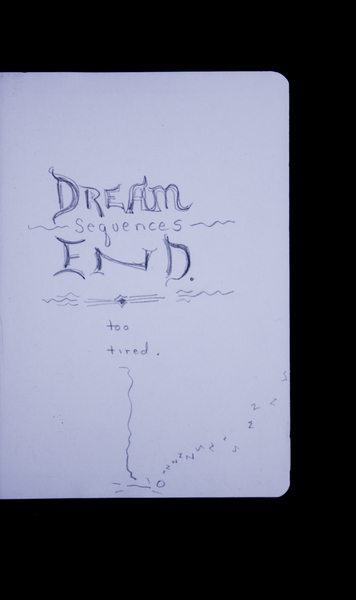 DREAM
Sequences
END.
too
tired.